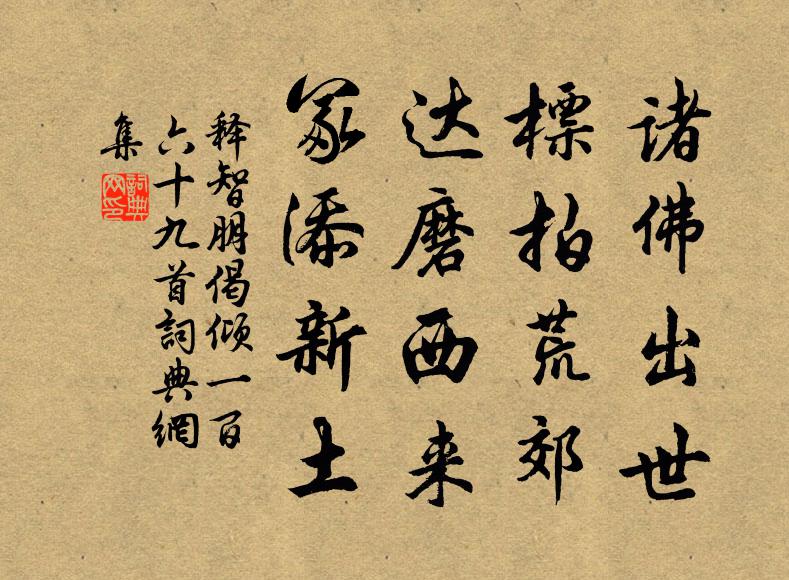 诸佛出世
標拍荒郊
达磨西来
冢添新土
释智朋偈倾一百
六十九首詞典網
集
詞典網印